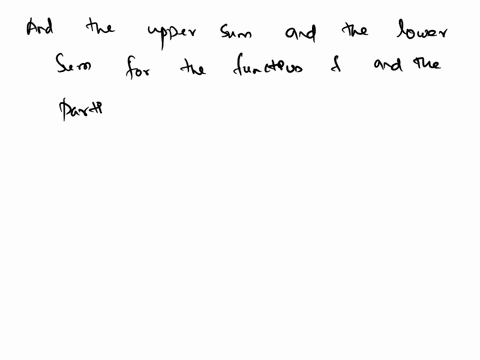 And the upper sum and the lower
Sum for the function f and the
Parti